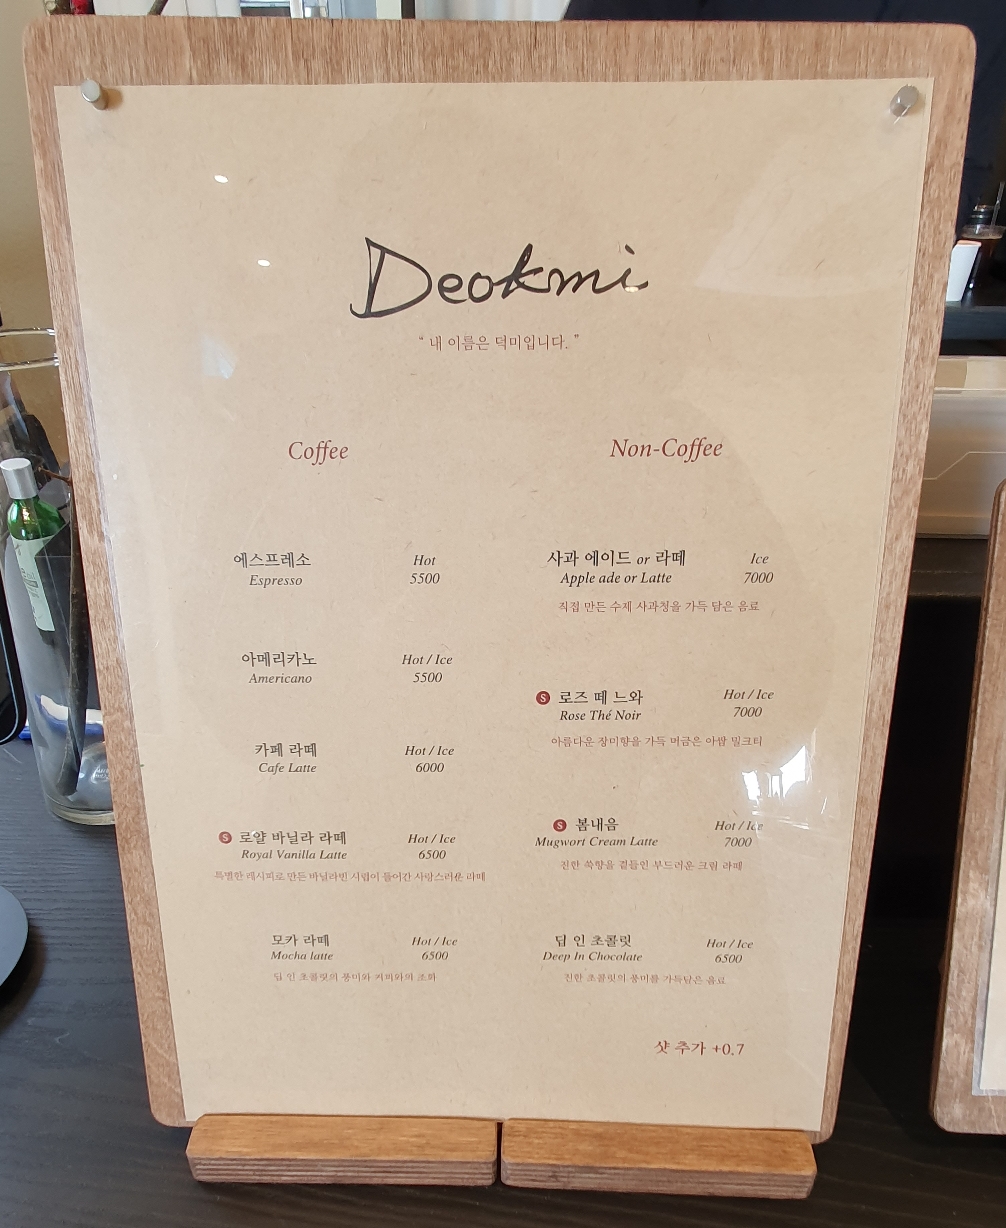 Deokmi
“ 내 이름은 덕미입니다. ”
Coffee
에스프레소 Hot
Espresso 5500
아메리카노 Hot / Ice
Americano 5500
카페 라떼 Hot / Ice
Cafe Latte 6000
S 로얄 바닐라 라떼 Hot / Ice
Royal Vanilla Latte 6500
특별한 레시피로 만든 바닐라빈 시럽이 들어간 사랑스러운 라떼
모카 라떼 Hot / Ice
Mocha latte 6500
딥 인 초콜릿의 풍미와 커피와의 조화
Non-Coffee
사과 에이드 or 라떼 Ice
Apple ade or Latte 7000
직접 만든 수제 사과청을 가득 담은 음료
S 로즈 떼 느와 Hot / Ice
Rose Thé Noir 7000
아름다운 장미향을 가득 머금은 아쌈 밀크티
S 봄내음 Hot / Ice
Mugwort Cream Latte 7000
진한 쑥향을 곁들인 부드러운 크림 라떼
딥 인 초콜릿 Hot / Ice
Deep In Chocolate 6500
진한 초콜릿의 풍미를 가득담은 음료
샷 추가 +0.7